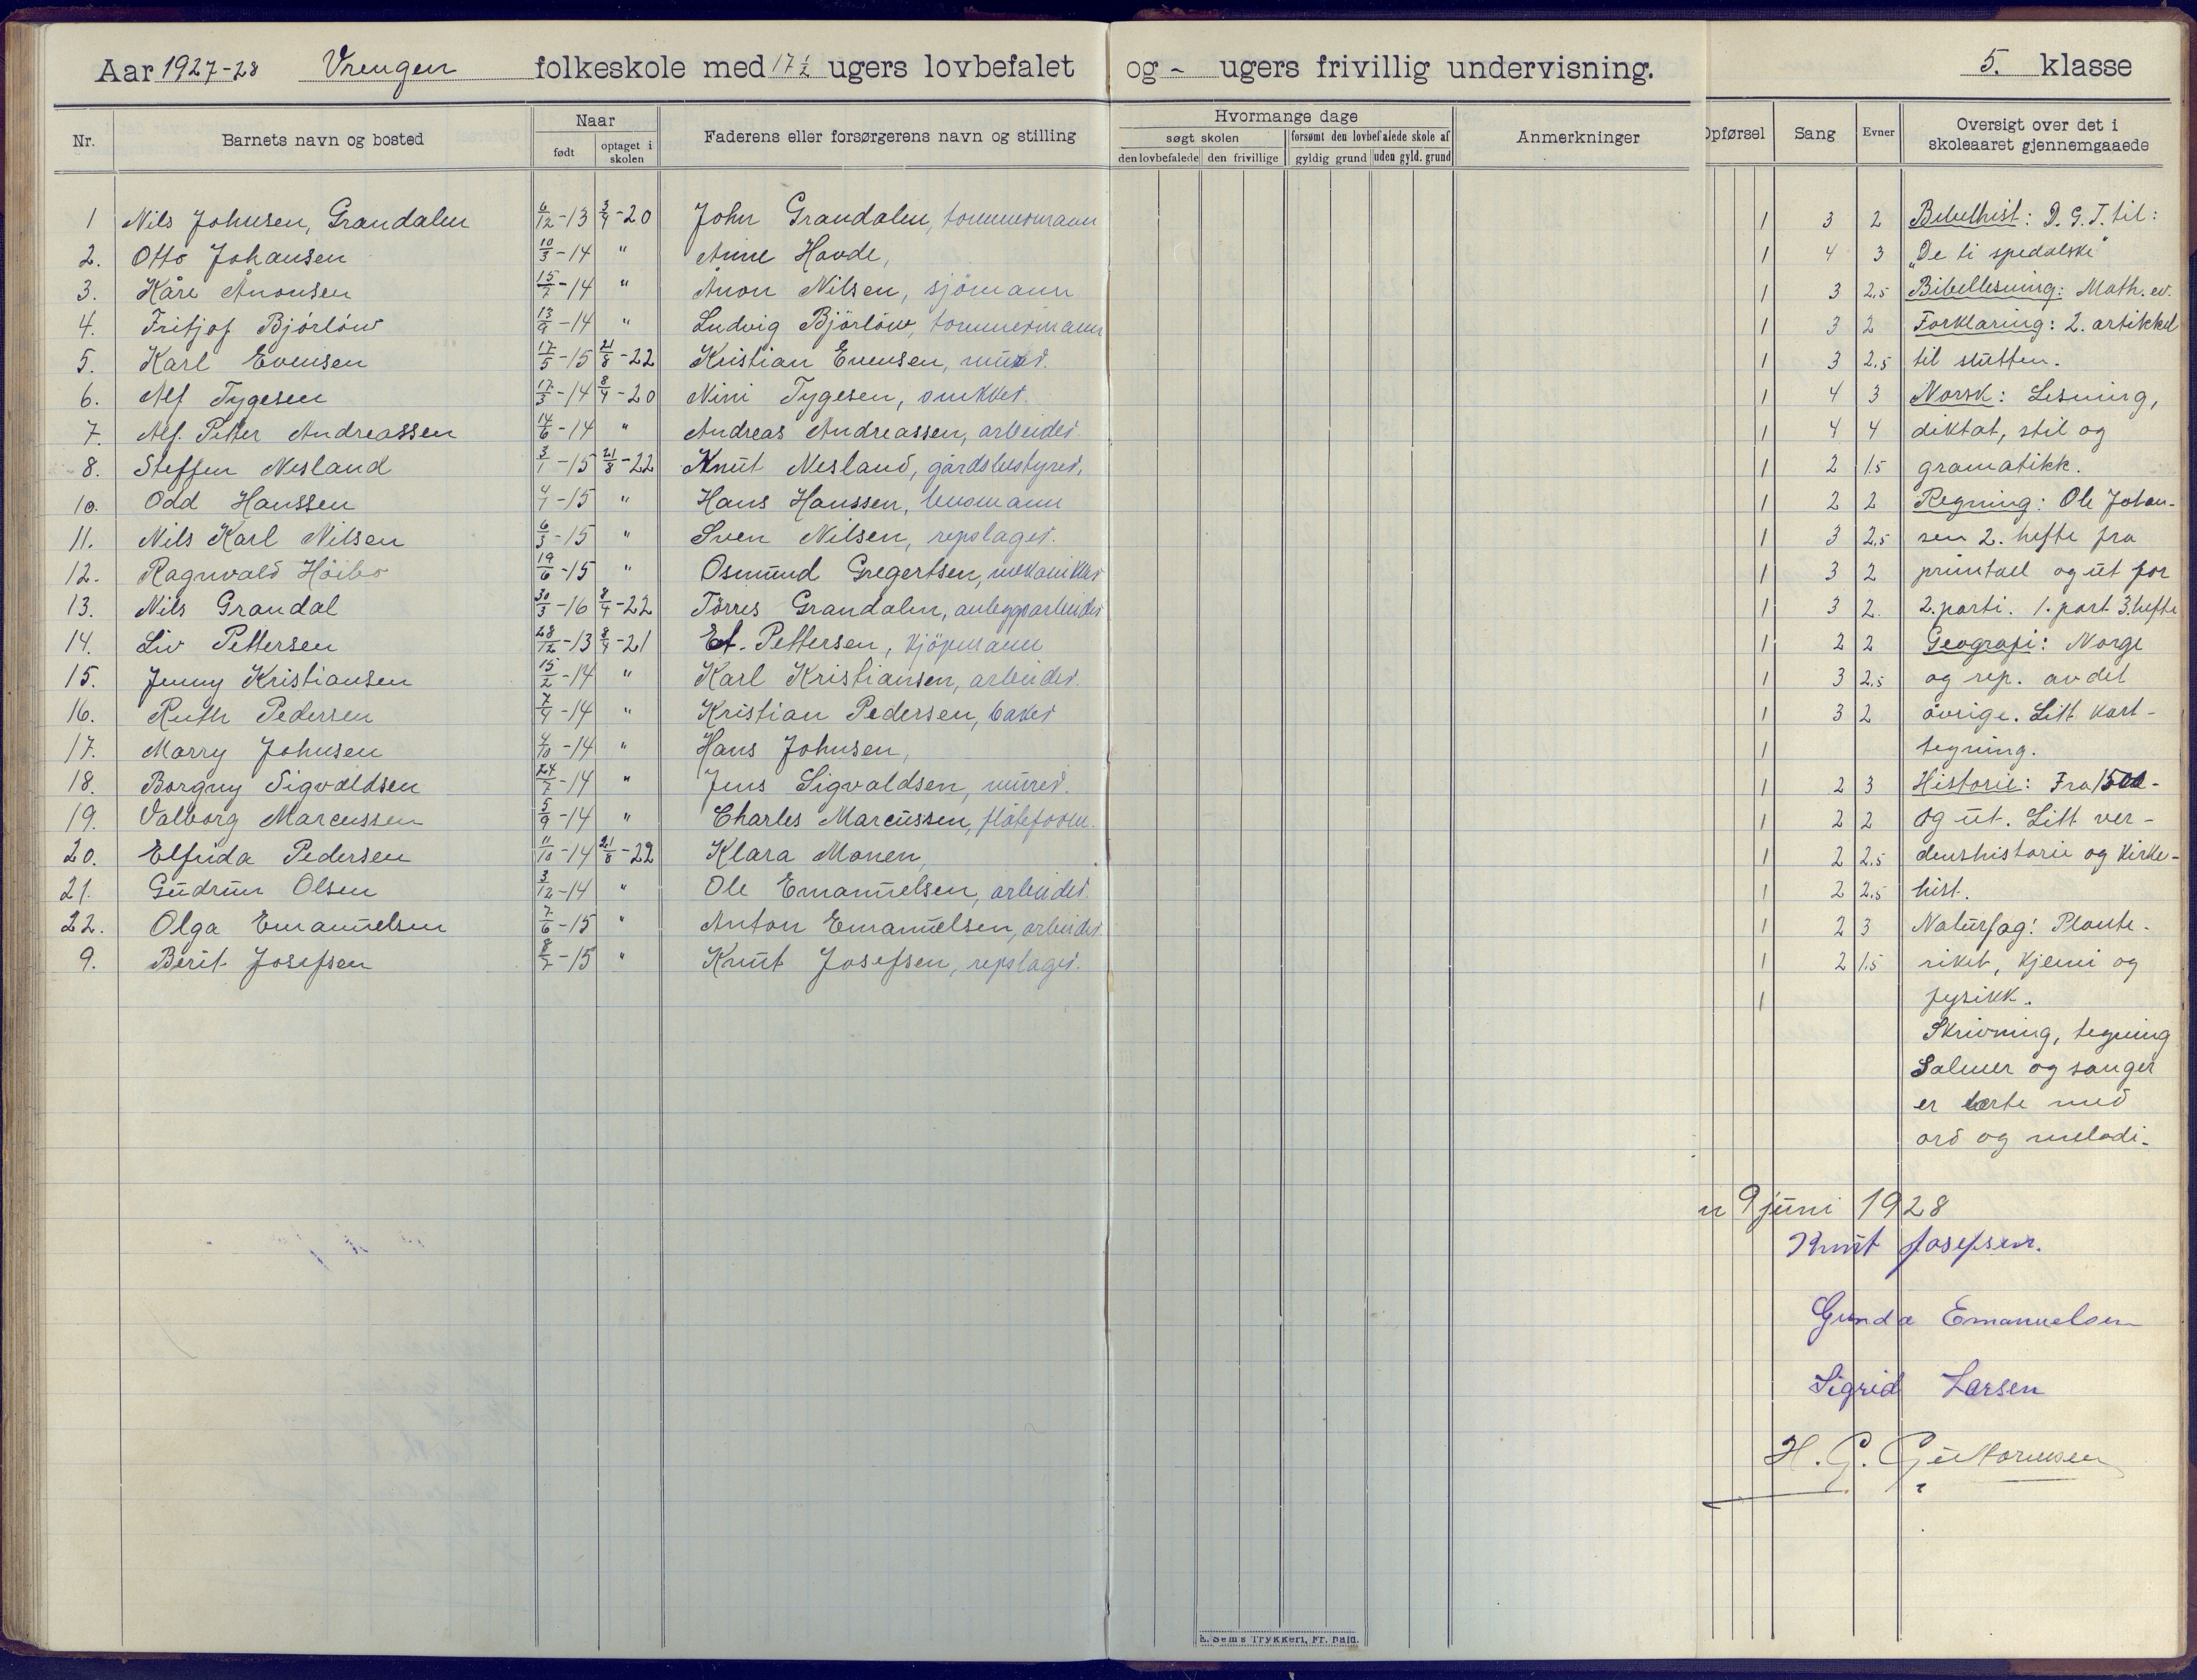 Aar 1927-28 Vrengen folkeskole med 17 1/2 ugers lovbefalet og - ugers frivillig undervisning. 5. klasse
Nr. Barnets navn og bosted Naar født optaget i skolen Faderens eller forsørgerens navn og stilling Hvormange dage søgt skolen den lovbefalede den frivillige forsømt den lovbefalede skole af gyldig grund uden gyld. grund Anmerkninger Opførsel Sang Evner Oversigt over det i skoleaaret gjennemgaaede
1 Nils Johnsen, Grandalen 6/12-13 3/4-20 John Grandalen, tømmermann 1 3 2 Bibelhist: D. G. T. til:
2. Otto Johansen 10/3-14 " Anne Hovde, 1 4 3 "De ti spedalske"
3. Kåre Ånonsen 15/7-14 " Ånon Nilsen, sjömann 1 3 2.5 Bibellesning: Math. ev.
4. Fritjof Bjórlów 13/9-14 " Ludvig Bjórlów, tømmermann 1 3 2 Forklaring: 2. artikkel
5. Karl Evensen 17/5-15 21/8-22 Kristian Evensen, murer. 1 3 2.5 til slutten.
6. Alf Tygesen 17/3-14 8/4-20 Nini Tygesen, snikker. 1 4 3 Norsk: Lesning,
7. Alf. Petter Andreassen 14/6-14 " Andreas Andreassen, arbeider. 1 4 4 diktat, stil og
8. Steffen Nesland 3/1-15 21/8-22 Knut Nesland, gårdsbestyrer. 1 2 1.5 gramatikk.
10. Odd Hanssen 4/1-15 " Hans Hanssen, lensmann 1 2 2 Regning: Ole Johan-
11. Nils Karl Nilsen 6/3-15 " Sven Nilsen, repslager. 1 3 2.5 sen 2. hefte fra
12. Ragnvald Höibo 19/6-15 " Osmund Gregertsen, mekaniker 1 3 2 primtall og ut for
13. Nils Grandal 30/3-16 8/4-22 Törres Grandalen, anleggsarbeider 1 3 2. 2. parti. 1. part 3. hefte
14. Liv Pettersen 28/12-13 8/4-21 Et. Pettersen, kjöpmann 1 2 2 Geografi: Norge
15. Jenny Kristiansen 15/2-14 " Karl Kristiansen, arbeider. 1 3 2.5 og rep. av det
16. Ruth Pedersen 7/4-14 " Kristian Pedersen, baker 1 3 2 óvrige. Litt kart-
17. Marry Johnsen 4/10-14 " Hans Johnsen, 1 tegning.
18. Borgny Sigvaldsen 24/7-14 " Jens Sigvaldsen, murer. 1 2 3 Historie: Fra 1500-
19. Valborg Marcussen 5/9-14 " Charles Marcussen, 1 2 2 og ut. Litt ver-
20. Elfrida Pedersen 11/10-14 21/8-22 Klara Monen, 1 2 2.5 denshistorie og kirke-
21. Gudrun Olsen 3/12-14 " Ole Emanuelsen, arbeider. 1 2 2.5 hist.
22. Olga Emanuelsen 7/6-15 " Anton Emanuelsen, arbeider. 1 2 3 Naturfag: Plante-
9. Berit Josefsen 8/7-15 " Knut Josefsen, repslager. 1 2 1.5 riket, kjemi og
1 fysikk.
Skrivning, tegning
Salmer og sanger
er lærte med
ord og melodi.
n 9 juni 1928
Knut Josefsen.
Gunda Emanuelsen
Sigrid Larsen
H. G. Guttormsen
E. Sem's Trykkeri, Fr. hald.